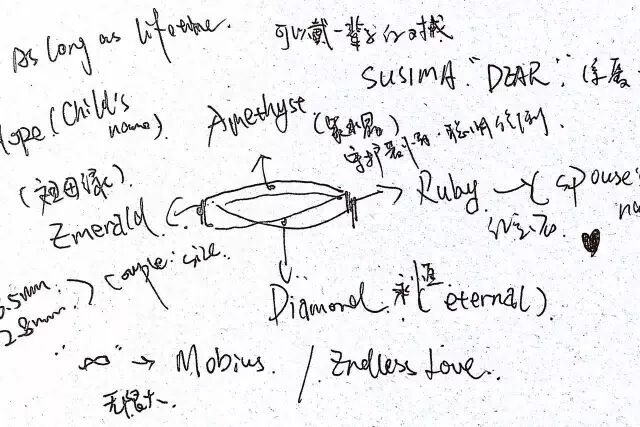 As long as lifetime.
可以戴一辈子的对戒
SUSIMA "DEAR"
Hope (Child's name).
Amethyst (紫水晶)
守护
(祖母绿)
Emerald
Ruby → (spouse's na
红宝石
♥
5mm
2.8mm
Couple size.
Diamond 永恒 (eternal).
"∞" → Mobius. / Endless Love.
无限大.